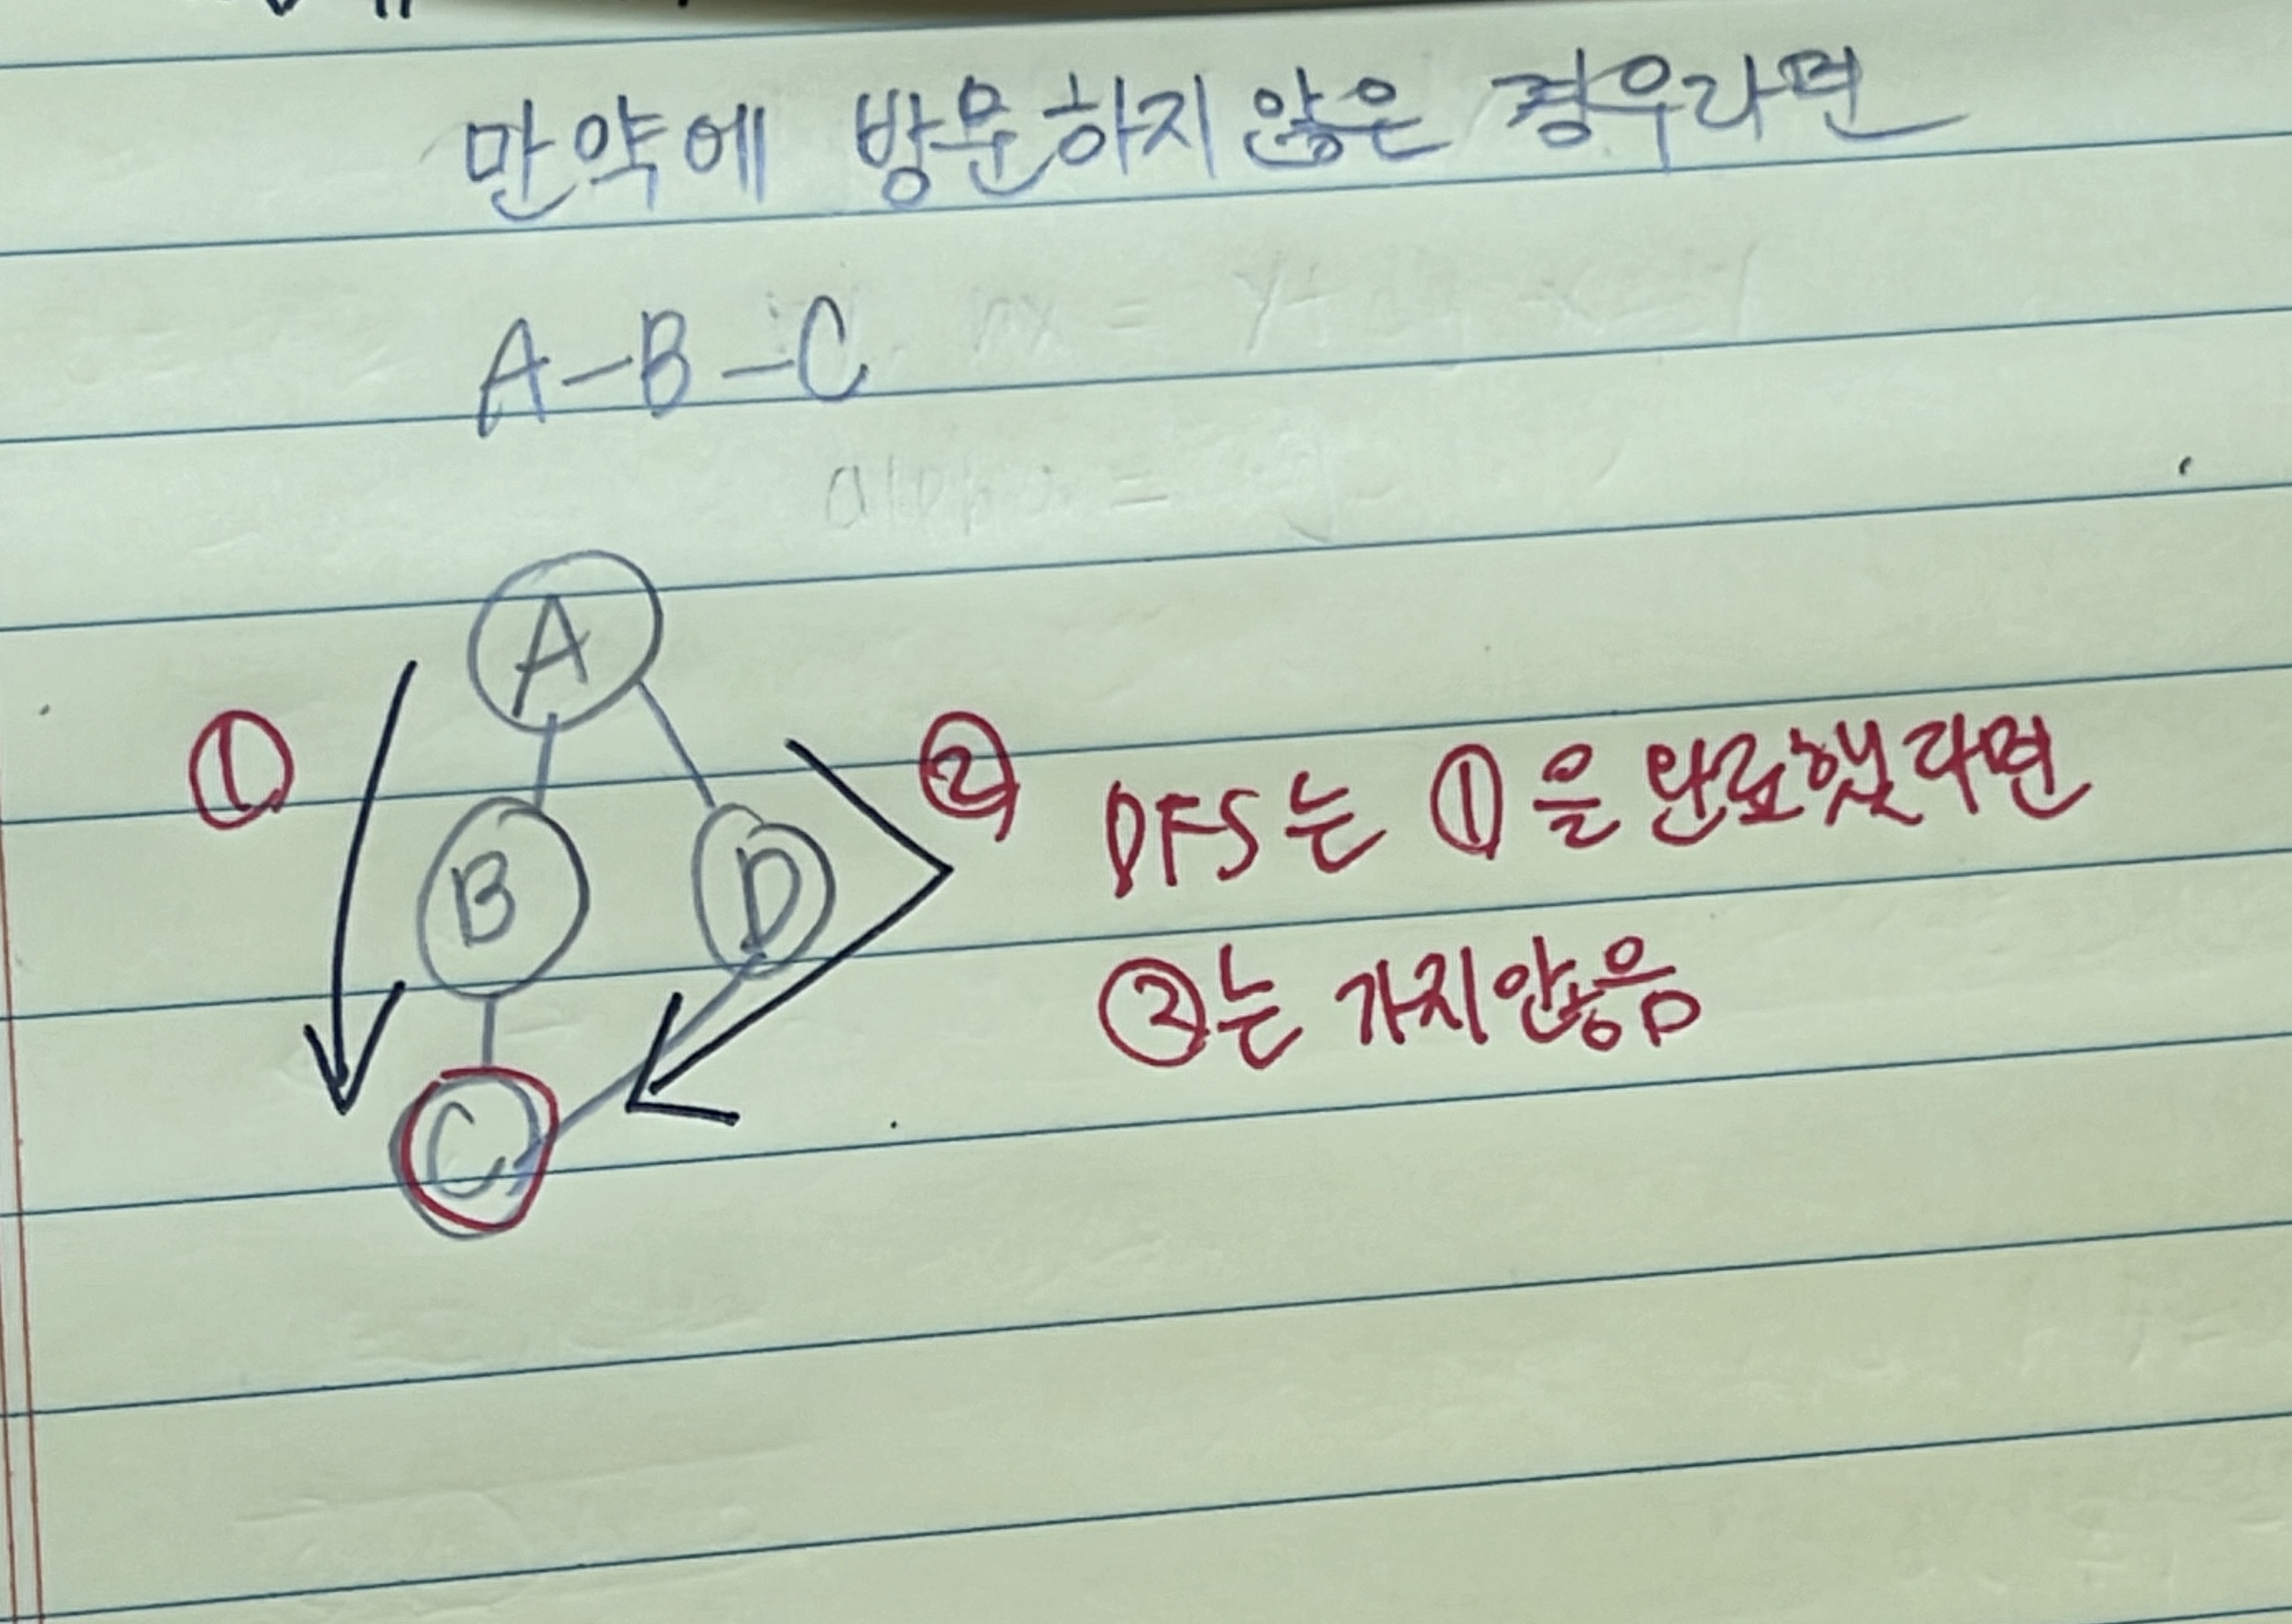 만약에 방문하지 않은 경우라면
A-B-C
A
①
②
B
D
DFS는 ①을 완료했라면
②는 가지않음
C